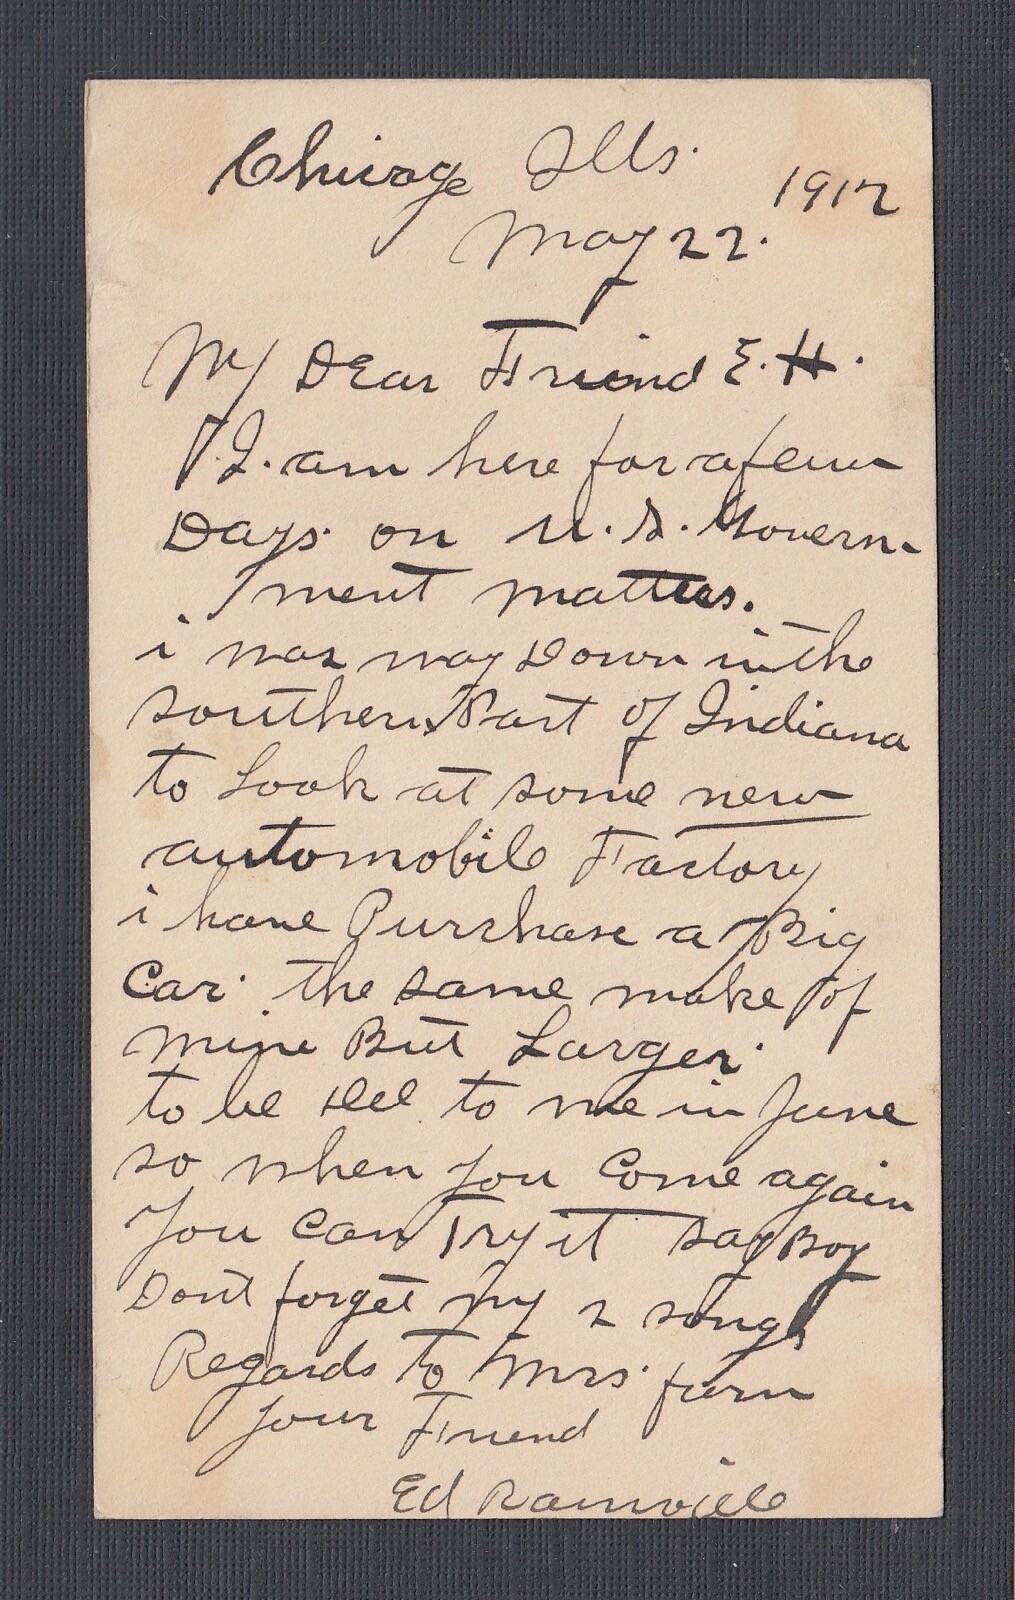 Chicage Ills.
1912
May 22.
My Dear Friend E. H.
I. am here for a few
Days. on U. S. Govern-
ment matters.
i was way Down in the
southern Part of Indiana
to Look at some new
automobile Factory
i have Purchase a Big
Car. the same make of
mine But Larger.
to be Del to me in June
so when you Come again
you can Try it say Boy
Dont forget my 2 songs
Regards to Mrs. farn
your Friend
Ed Rainville